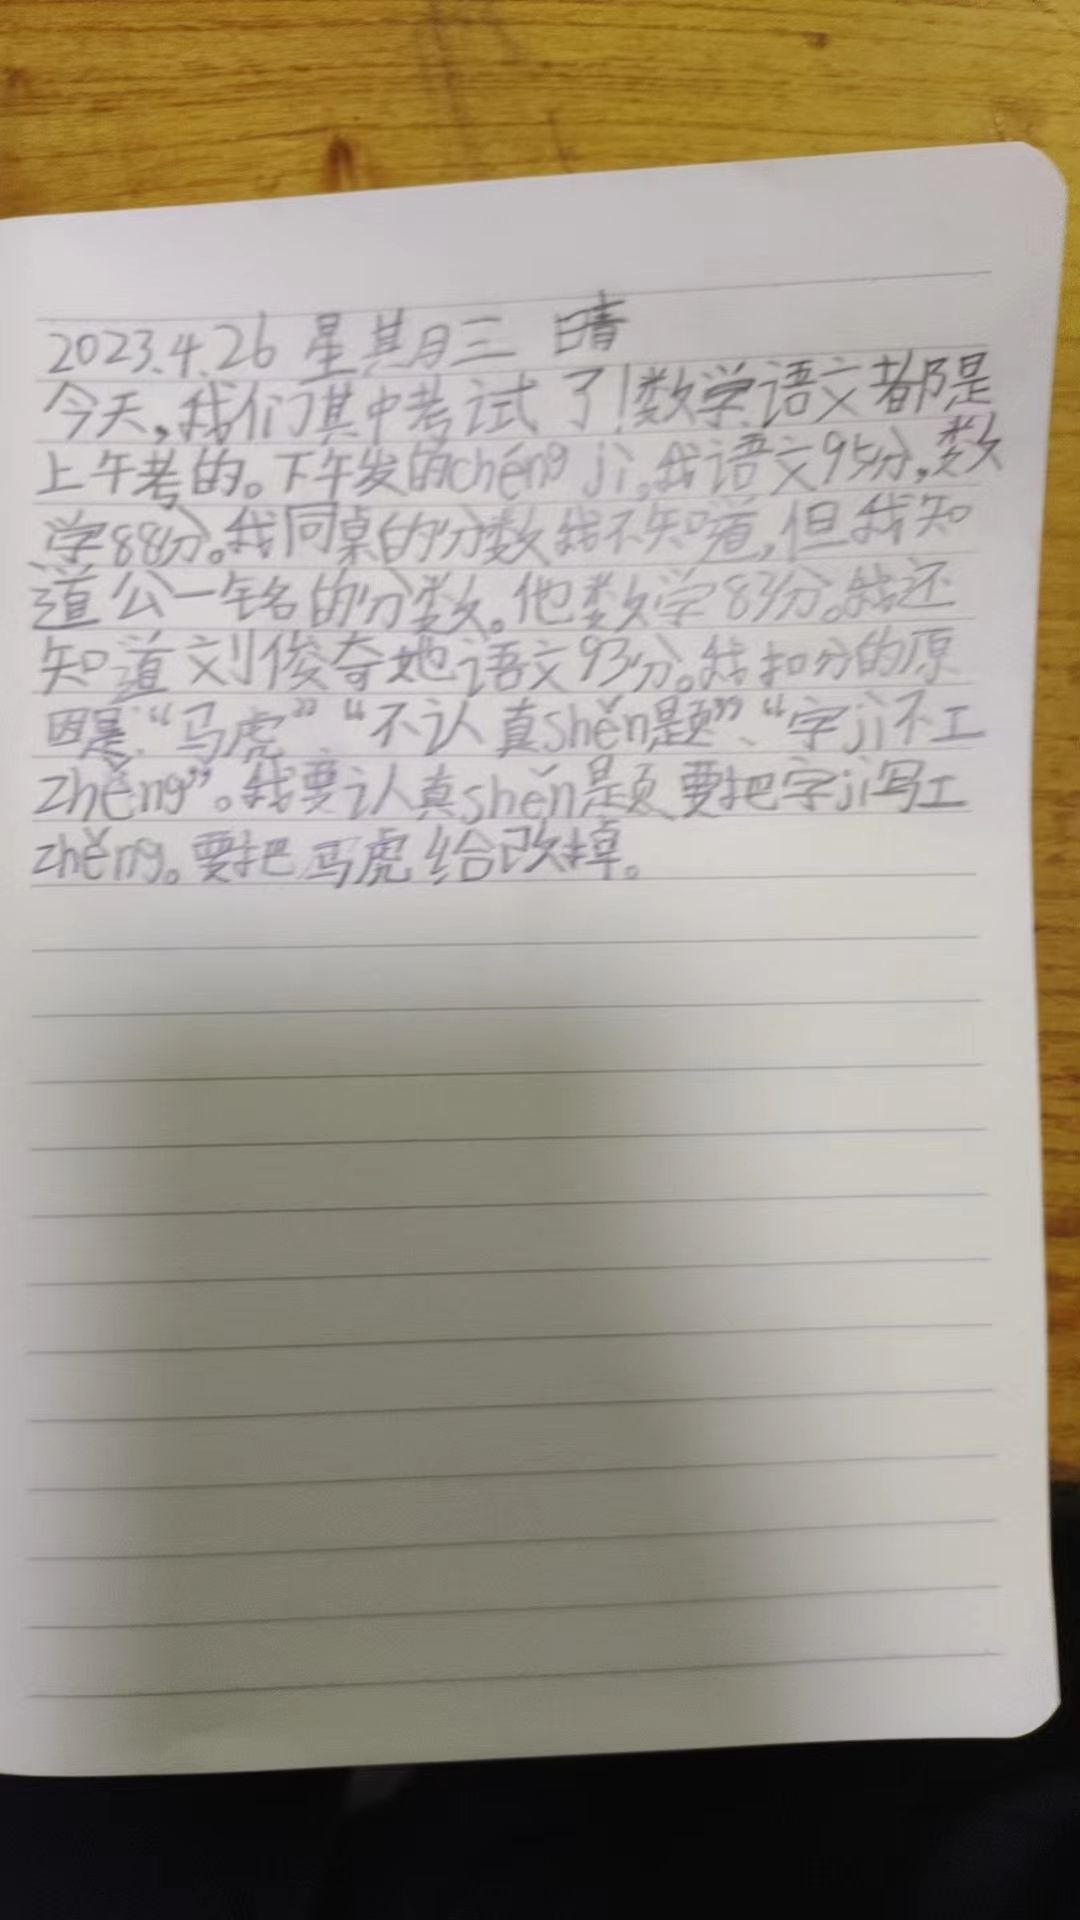 2023.4.26 星其月三 晴
今天,我们其中考试了!数学语文都是
上午考的。下午发的chéng jì,我语文95分,数
学88分。我同桌的分数我不知道,但我知
道公一铭的分数。他数学83分。我还
知道刘俊奇她语文93分。我扣分的原
因是:“马虎”“不认真shěn题”、“字jì不工
zhěng”。我要认真shěn题要把字jì写工
zhěng。要把马虎给改掉。